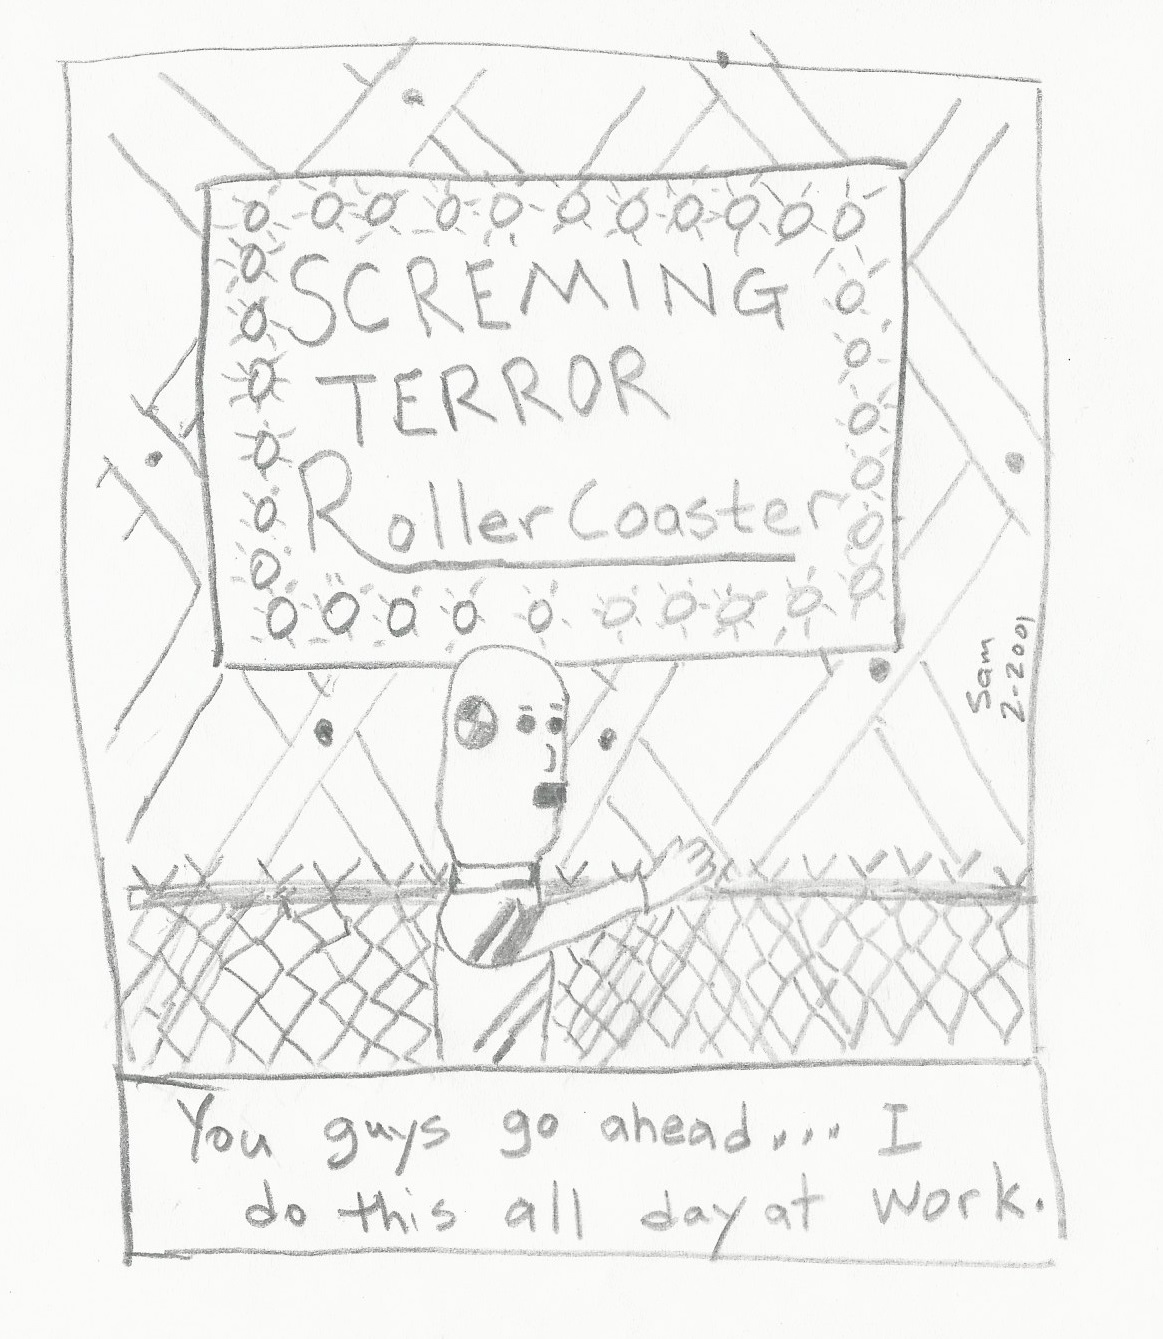 SCREMING
TERROR
Roller Coaster
Sam
2-2001
You guys go ahead.... I
do this all day at work.